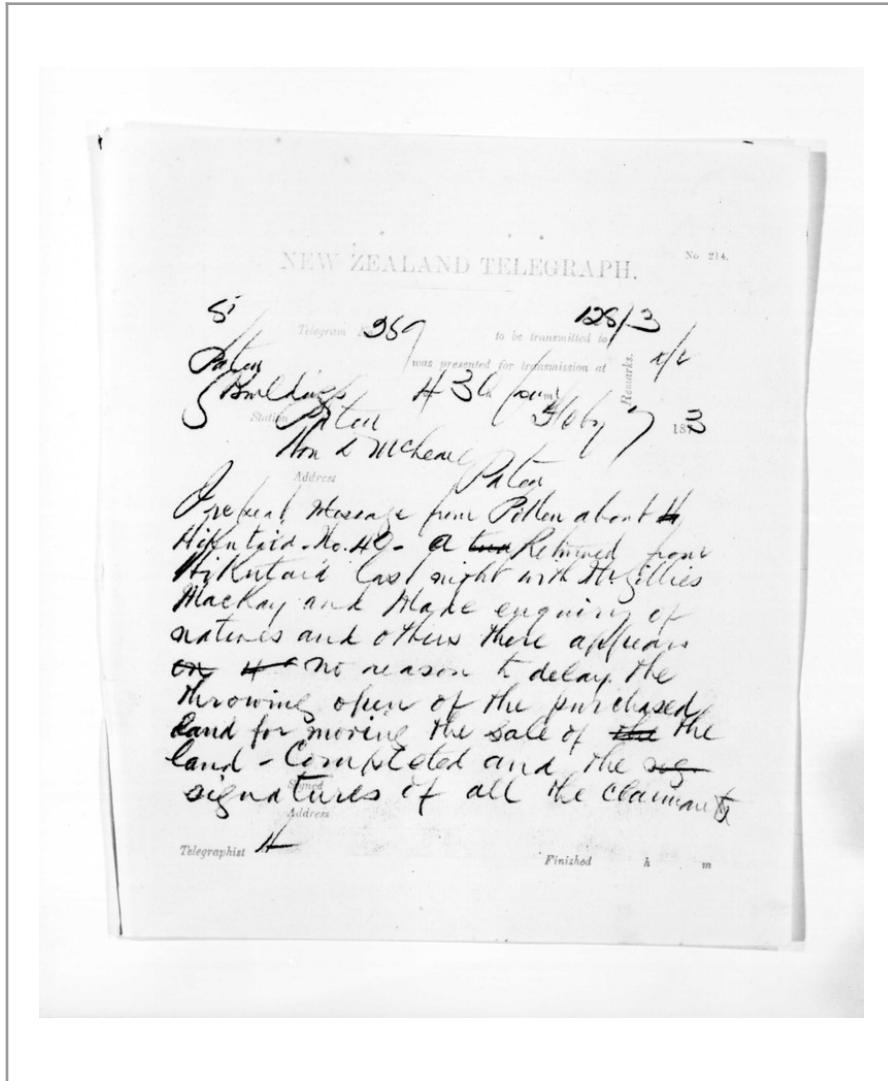 NEW ZEALAND TELEGRAPH.
No 214.
Telegram No 257 to be transmitted to 128/3
Remarks.
was presented for transmission at
Buildings
Station Feby 7 1873
Hon D McLean
Address
Patea
I repeat Message from Pollen about H
Hikutaia - No. 49 - a tua Returned from
Hikutaia last night with Mr Gillies
MacKay and Made enquiry of
natives and others there appears
on H no reason to delay the
throwing open of the purchased
land for moving the sale of the the
land - Completed and the sig
signatures of all the claimants
Signed
Address
Telegraphist H
Finished h m